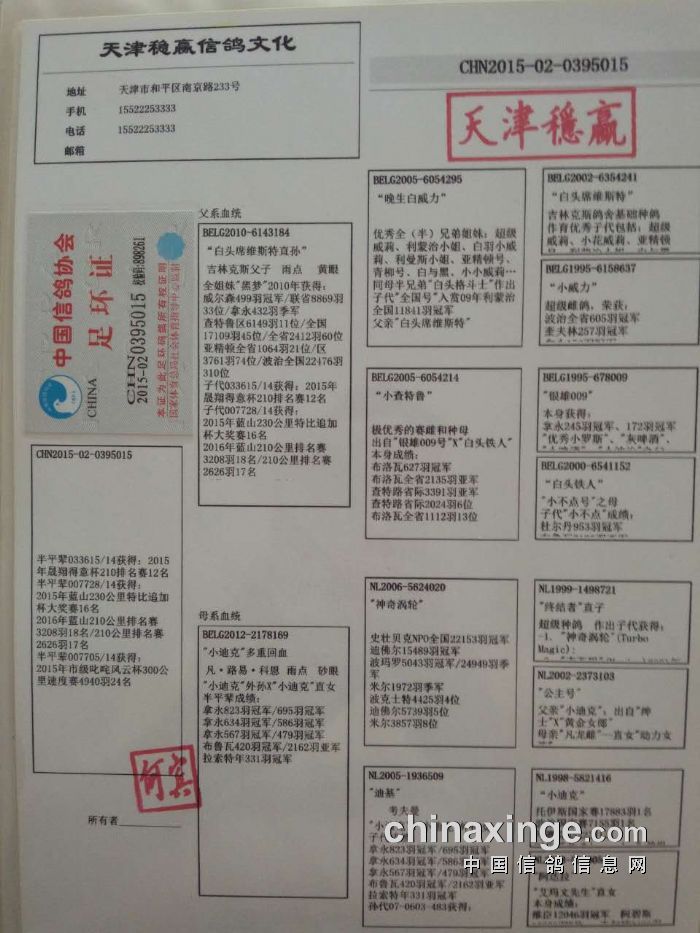 天津稳赢信鸽文化
地址 天津市和平区南京路233号
手机 15522253333
电话 15522253333
邮箱
CHN2015-02-0395015
天津穩赢
中国信鸽协会
足环证
CHINA
CHN
2015-02 0395015
本证为此足环确属所有权证明
CHN2015-02-0395015
半平辈033615/14获得：2015
年晟翔得意杯210排名赛12名
半平辈007728/14获得：
2015年蓝山230公里特比追加
杯大奖赛16名
2016年蓝山210公里排名赛
3208羽18名/210公里排名赛
2626羽17名
半平辈007705/14获得：
2015年市级叱咤风云杯300公
里速度赛4940羽24名
所有者
父系血统
BELG2010-6143184
“白头席维斯特直孙”
吉林克斯父子 雨点 黄眼
全姐妹“黑梦”2010年获得：
威尔森499羽冠军/联省8869羽
33位/拿永432羽季军
查特鲁区6149羽11位/全国
17109羽45位/全省2412羽60位
亚精顿全省1064羽21位/区
3761羽74位/波治全国22476羽
310位
子代033615/14获得：2015年
晟翔得意杯210排名赛12名
子代007728/14获得：
2015年蓝山230公里特比追加
杯大奖赛16名
2016年蓝山210公里排名赛
3208羽18名/210公里排名赛
2626羽17名
母系血统
BELG2012-2178169
“小迪克”多重回血
凡·路易·科恩 雨点 砂眼
“小迪克”外孙X“小迪克”直女
半平辈成绩：
拿永823羽冠军/695羽冠军
拿永634羽冠军/586羽冠军
拿永567羽冠军/479羽冠军
布鲁瓦420羽冠军/2162羽亚军
拉索特年331羽冠军
BELG2005-6054295
“晚生白威力”
优秀全（半）兄弟姐妹：超级
威莉、利蒙治小姐、白羽小威
莉、利曼斯小姐、亚精顿号、
青柳号、白与黑、小小威莉…
同母半兄弟“白头格斗士”作出
子代“全国号”入赏09年利蒙治
全国11841羽冠军
父亲“白头席维斯特”
BELG2002-6354241
“白头席维斯特”
吉林克斯鸽舍基础种鸽
作育优秀子代包括：超级
威莉、小花威莉、亚精顿
BELG1995-6158637
“小威力”
超级雌鸽，荣获：
波治全省605羽冠军
奎夫林257羽冠军
BELG2005-6054214
“小查特鲁”
极优秀的赛雌和种母
出自“银雄009号”X“白头铁人”
本身成绩：
布洛瓦627羽冠军
布洛瓦全省2135羽亚军
查特路省际3391羽亚军
查特路省际2024羽6位
布洛瓦全省1112羽13位
BELG1995-678009
“银雄009”
本身获得：
拿永245羽冠军、172羽冠军
“优秀小罗斯”、“灰啤酒”、
BELG2000-6541152
“白头铁人”
“小不点号”之母
子代“小不点”成绩：
杜尔丹953羽冠军
NL2006-5624020
“神奇涡轮”
史壮贝克NPO全国22153羽冠军
迪佛尔15489羽冠军
波玛罗5043羽冠军/24949羽季
军
米尔1972羽季军
波克士特4425羽4位
迪佛尔5739羽5位
米尔3857羽8位
NL1999-1498721
“终结者”直子
超级种鸽 作出子代获得：
-1. “神奇涡轮”(Turbo
Magic):
NL2002-2373103
“公主号”
父亲“小迪克”；出自“绅
士”X“黄金女郎”
母亲“凡龙雌”—直女“动力女
NL2005-1936509
“迪基”
考夫曼
拿永823羽冠军/695羽冠军
拿永634羽冠军/586羽冠军
拿永567羽冠军/479羽冠军
布鲁瓦420羽冠军/2162羽亚军
拉索特年331羽冠军
孙代07-0603-483获得：
NL1998-5821416
“小迪克”
托伊斯国家赛17883羽1名
“艾玛文先生”直女
本身成绩：
维臣12046羽冠军
chinaxinge.com
中国信鸽信息网